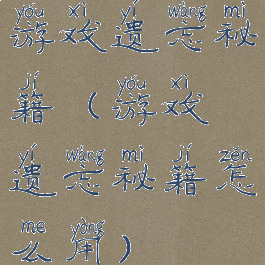 yóu xì yí wàng mì
游戏遗忘秘
jí yóu xì
籍（游戏
yí wàng mì jí zěn
遗忘秘籍怎
me yòng
么用）